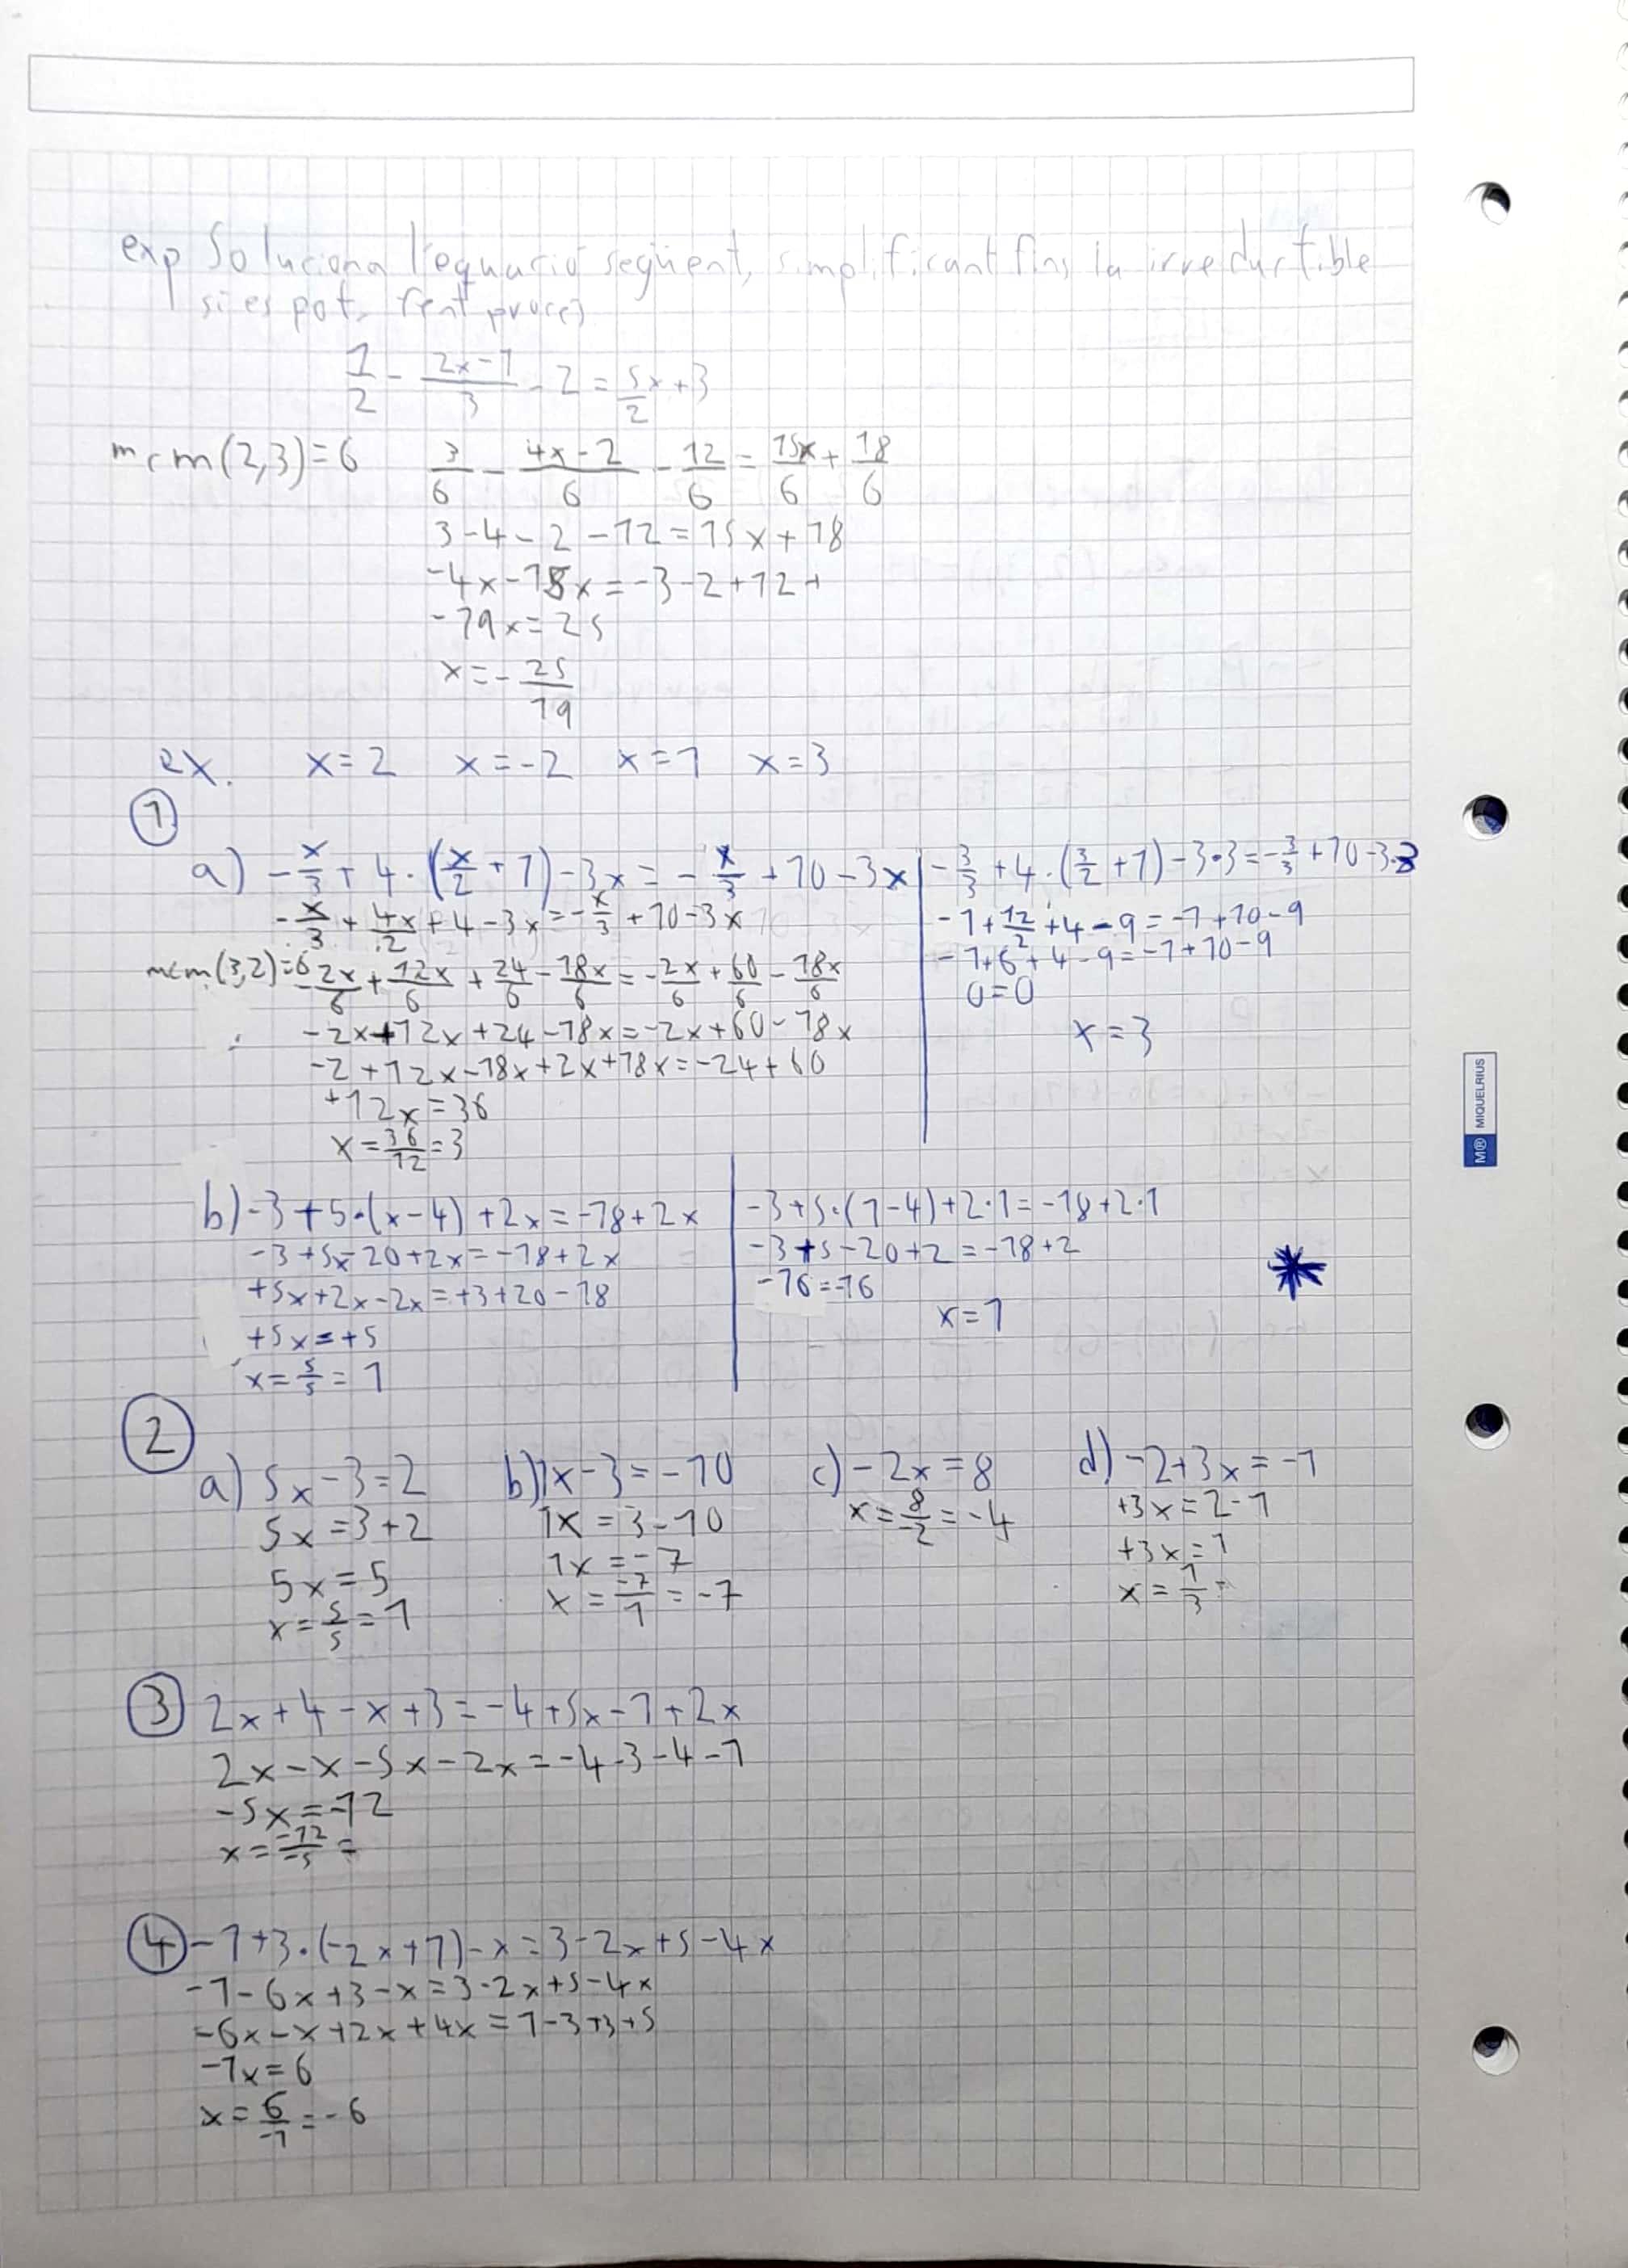 exp Soluciona l'equació següent, simplificant fins la irreductible
si es pot, fent procés
1/2 - (2x-1)/3 - 2 = 5x/2 + 3
mcm(2,3)=6    3/6 - (4x-2)/6 - 12/6 = 15x/6 + 18/6
3-4-2-12=15x+18
-4x-15x=-3-2+12+
-19x=25
x=-25/19
ex. x=2 x=-2 x=1 x=3
1
a) -x/3 + 4·(x/2 + 1) - 3x = -x/3 + 10 - 3x | -3/3 + 4·(3/2 + 1) - 3·3 = -3/3 + 10 - 3·3
-x/3 + 4x/2 + 4 - 3x = -x/3 + 10 - 3x | -1 + 12/2 + 4 - 9 = -1 + 10 - 9
mcm(3,2)=6 -2x/6 + 12x/6 + 24/6 - 18x/6 = -2x/6 + 60/6 - 18x/6 | -1+6+4-9=-1+10-9
0=0
-2x+12x+24-18x=-2x+60-18x | x=3
-2+12x-18x+2x+18x=-24+60
+12x=36
x=36/12=3
b) -3+5·(x-4)+2x=-18+2x | -3+5·(1-4)+2·1=-18+2·1
-3+5x-20+2x=-18+2x | -3+5-20+2=-18+2
+5x+2x-2x=+3+20-18 | -16=-16
+5x=+5 | x=1
x=5/5=1
2
a) 5x-3=2 b) 1x-3=-10 c) -2x=8 d) -2+3x=-1
5x=3+2 1x=3-10 x=8/-2=-4 +3x=2-1
5x=5 1x=-7 +3x=1
x=5/5=1 x=-7/1=-7 x=1/3=
3 2x+4-x+3=-4+5x-1+2x
2x-x-5x-2x=-4-3-4-1
-5x=-12
x=-12/-5=
4 -1+3·(-2x+1)-x=3-2x+5-4x
-1-6x+3-x=3-2x+5-4x
-6x-x+2x+4x=1-3+3+5
-1x=6
x=6/-1=-6
M® MIQUELRIUS